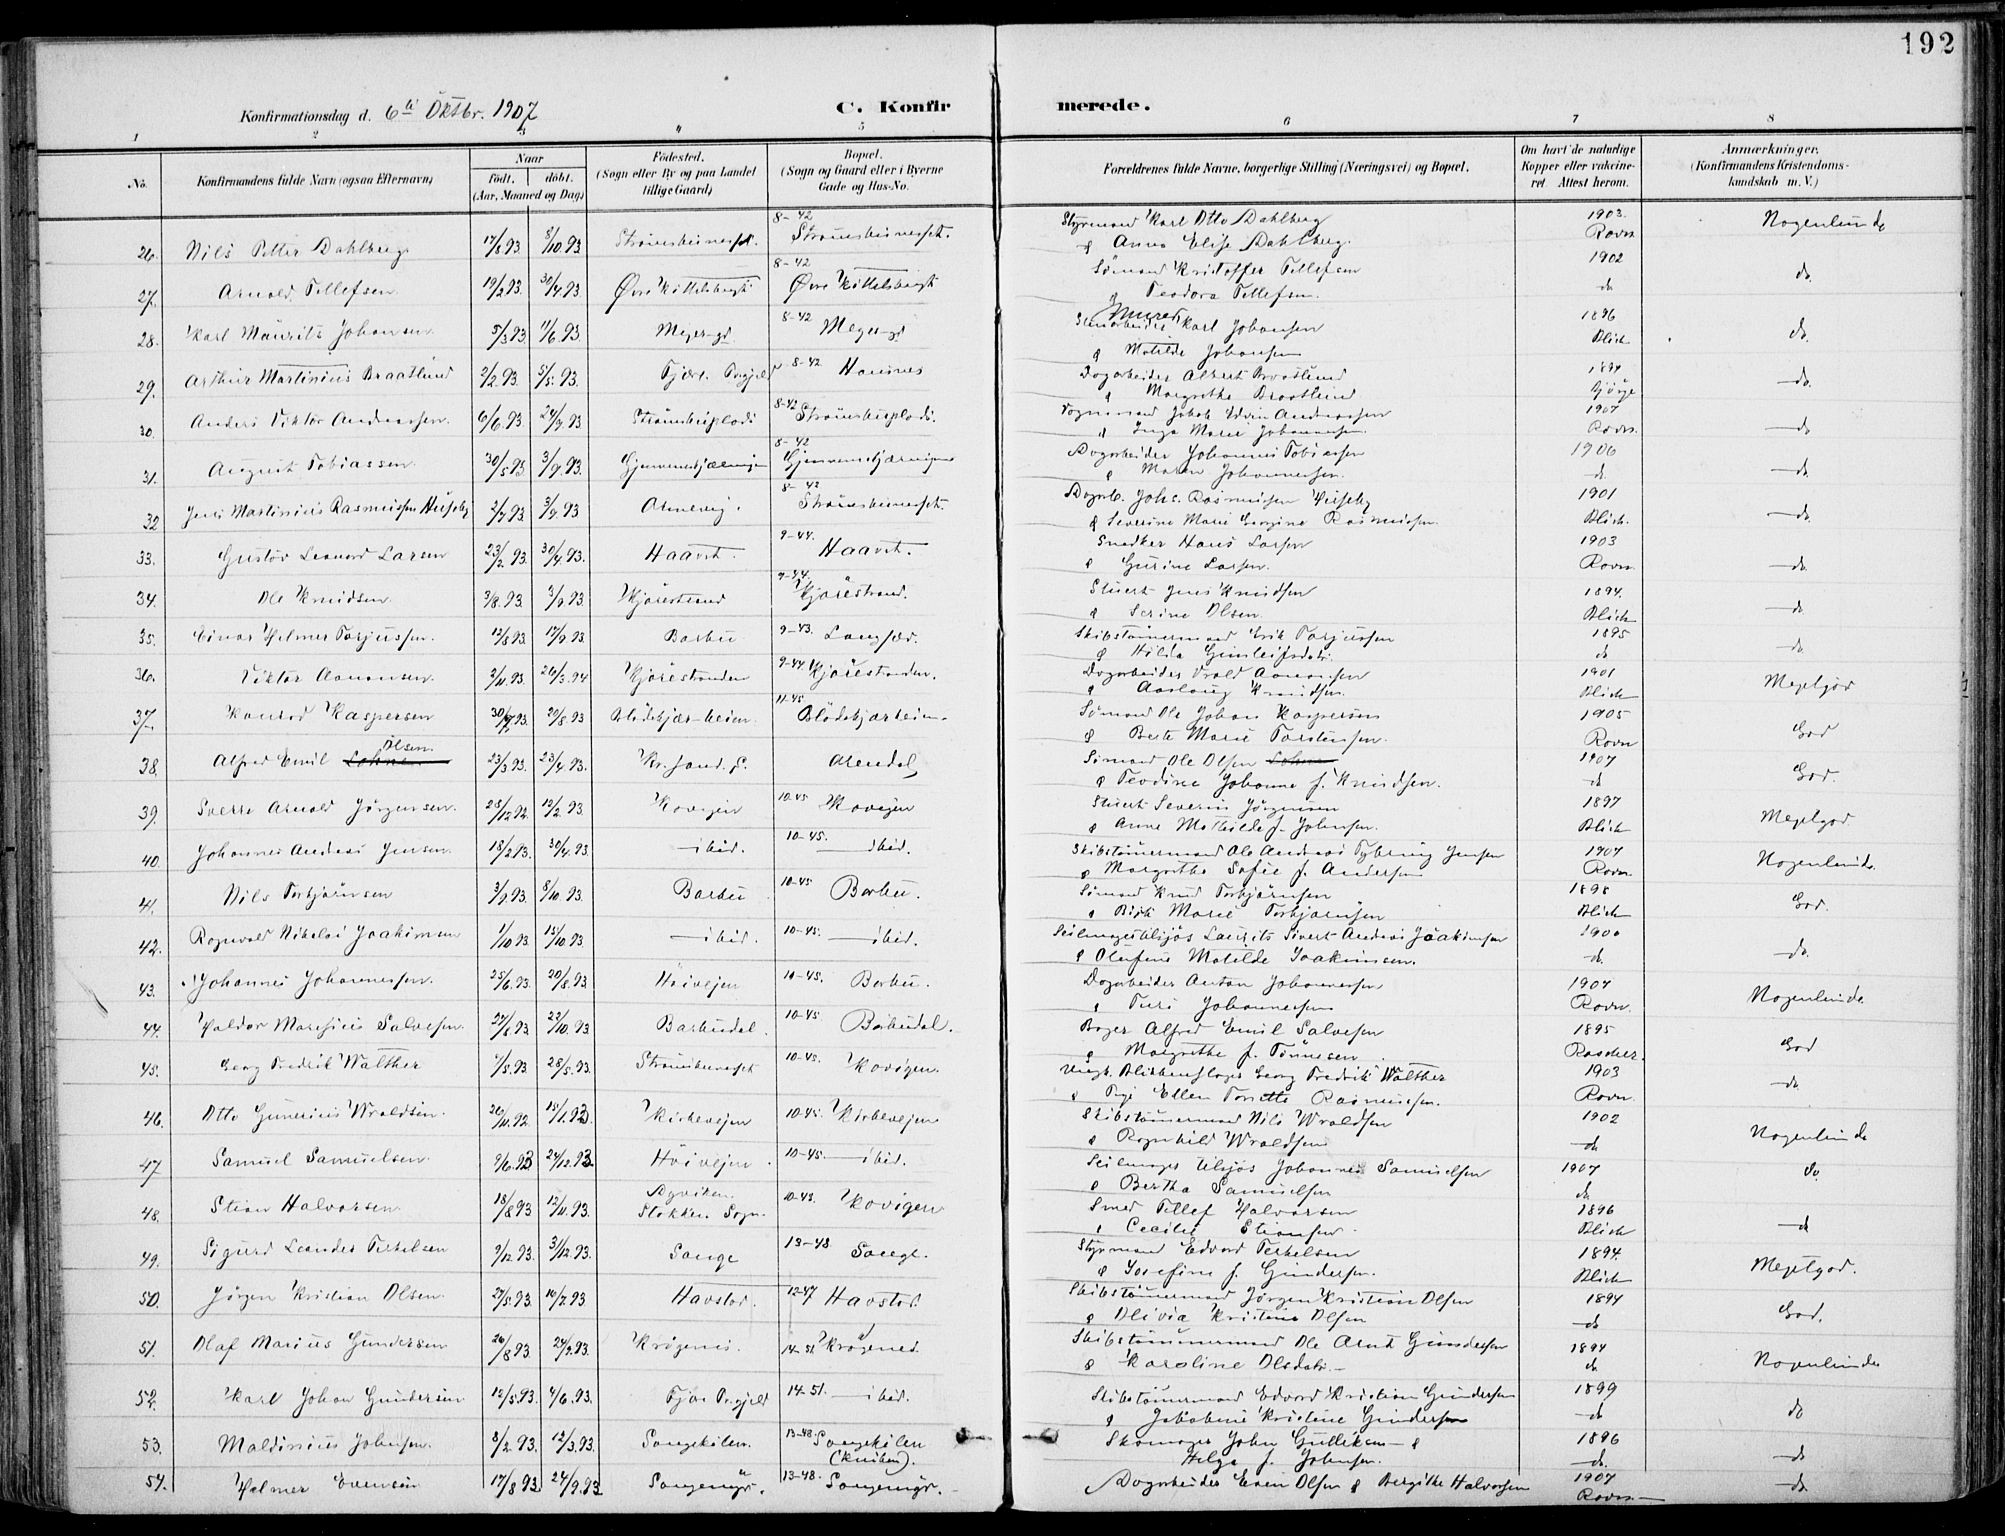 192
Konfirmationsdag d. 6te Oktbr. 1907
C. Konfirmerede.
1 2 3 4 5 6 7 8
No.
Konfirmandens fulde Navn (ogsaa Efternavn)
Naar
født. døbt.
(Aar, Maaned og Dag)
Fødested.
(Sogn eller By og paa Landet
tillige Gaard)
Bopæl.
(Sogn og Gaard eller i Byerne
Gade og Hus-No.
Forældrenes fulde Navne, borgerlige Stilling (Næringsvei) og Bopæl.
Om havt de naturlige
Kopper eller vakcine-
ret Attest herom.
Anmærkninger.
(Konfirmandens Kristendoms-
kundskab m. V.)
8-42 Styrmand Karl Otto Dahlberg 1903.
26. Nils Petter Dahlberg 8/10.93 Strømsbunesset. Strømsbunesset. & Anna Elise Dahlberg. Rovn Nogenlunde
8-42 Sømand Kristoffer Tellefsen 1902
27. Arnold Tellefsen 19/2.93. 30/4.93. Øvre Kittelsbugt Øvre Kittelsbugt & Teodora Tellefsen. do do
8-42 Karl Johansen 1896
28. Karl Maurits Johansen 5/3.93. 11/6.93. Meyer-gd Meyer-gd & Matilde Johansen Blich do.
8-42 Dagarbeider Albert Braatlund 1894
29. Arthur Martinius Braatlund 2/2.93. 5/5.93. Havnes & Margrethe Braatlund do.
8-42 Vognmand Jakob Edvin Andreassen 1907
30. Anders Viktor Andreassen. 6/6.93. 24/9.93 & Inga Marie Johannessen Rovn. do
8-42 Dagarbeider Johannes Tobiassen 1906
31. August Tobiassen 30/5.93 3/9.93. & Maren Johannessen. do do
8-42 Dagarb. Johs. Rasmussen Huseby 1901
32 Jens Martinius Rasmussen Huseby 2/7.93 3/9.93 Strømsbunesset. & Severine Marie Georgine Rasmussen. Blich. do
9-44. Snedker Hans Larsen 1903
33. Gustav Leonard Larsen 23/2.93 30/4.93. Haavet. Haavet. & Gurine Larsen. Rovn do
9-44. Stuert Jens Knudsen 1894.
34. Ole Knudsen 3/8.93. 3/9.93. Kjørestrand Kjørestrand. & Serine Olsen Blich do
9-43. Skibstømmermand Erik Torjussen 1895
35. Einar Helmer Torjussen. 12/8.93 17/9.93. Barbu Langsæv. & Hilda Gunleifsdatr. do do
9-44 Dagarbeider Aanonsen 1901
36. Viktor Aanonsen. 2/11.93. 26/3.94 Kjørestranden Kjørestranden. & Aaslaug Knudsen Blich Megetgod
11-45 Sømand Ole Johan Kaspersen 1905
37. Konrad Kaspersen 20/8 93 Blødekjær-heien. Blødekjærheien. & Berte Marie Torstensen. Rovn God
38. Alfred Emil Olsen 23/3.93. 23/4.93. Kr. sand. S. Arendal Sømand Ole Olsen 1907
& Teodine Johanne f. Knudsen. do God.
10-45 Stuert Severin Jørgensen 1897
39. Sverre Arnold Jørgensen. 28/12.92. 12/2.93. Kovigen Kovigen & Anne Mathilde f. Johnsen. Blich Megetgod
10-45. Skibstømmermand Ole Andreas Tybring Jensen 1907
40. Johannes Andreas Jensen. 18/2.93. 30/4.93. ibid. ibid. & Margrethe Sofie f. Andersen Rovn. Nogenlunde.
10-45 Sømand Knud Torbjørnsen 1898
41. Nils Torbjørnsen 3/9.93. 8/10.93. Barbu Barbu. & Marie Torbjørnsen Blich God.
10-45. Laurits Sivert Andreas Joakimsen 1900
42. Ragnvald Nikolai Joakimsen 1/10.93. 15/10.93. ibid. ibid. & Olufine Matilde Joakimsen. do do.
10-45. Dagarbeider Anton Johannessen 1907
43. Johannes Johannessen. 25/6.93. 20/8.93. Høivejen Barbu. & Turi Johannessen Rovn. Nogenlunde
10-45 Bager Alfred Emil Salvesen 1895
44. Haldor Marselius Salvesen. Barbudal. Barbudal. & Margrethe f. Tønnesen Rascher. God
10-45. Georg Fredrik Walther 1903
45. Georg Fredrik Walther 1/5.93. 28/5.93. Strømsbunesset Kovigen. & Ellen Rasmussen. Rovn. do
10-45. Skibstømmermand Nils Wraldsen 1902
46. Otto Gunerius Wraldsen. 26/11.92. 15/1.93. Kirkevejen Kirkevejen & Ragnhild Wraldsen do Nogenlunde
10-45. Johannes Samuelsen 1907
47 Samuel Samuelsen. 9/6.93 24/12.93. Høivejen. ibid. & Bertha Samuelsen do do.
10-43. Smed Tellef Halvorsen 1896
48. Stian Halvorsen 18/8.93 12/11.93. Stokken Sogn. Kovigen & Cecilie Stiansen Blich do
13-48 Styrmand Edvard Terkelsen 1894.
49. Sigurd Leander Terkelsen 9/12.93. 31/12.93. Songe Songe. & Josefine f. Gundersen. Blich Megetgod.
12-47 Skibstømmermand Jørgen Kristian Olsen 1894
50. Jørgen Kristian Olsen. 27/5.93. 16/7.93 Havstad. Havstad. & Olivia Kristine Olsen do God.
14-51 Skibstømmermand Ole Arnt Gundersen 1894
51. Olaf Marius Gundersen 26/8.93. 24/9.93. Krøgenes. Krøgenes & Karoline Olsdatr. do Nogenlunde
14-51. Skibstømmermand Edvard Kristian Gundersen 1899
52. Karl Johan Gundersen 12/5.93. 4/6.93. ibid. & Jakobine Kristine Gundersen do do
13-48. Skomager John Gulliksen & 1896
53. Maldinius Johnsen. 8/2.93. 12/3.93. Songekilen. Songekilen Helga f. Johnsen. do. do
54. Helmer Evensen 17/8.93 24/9.93. Songemyr. 13-48. Songemyr. Dagarbeider Even Olsen & Bergithe Halvorsen 1907 Rovn do